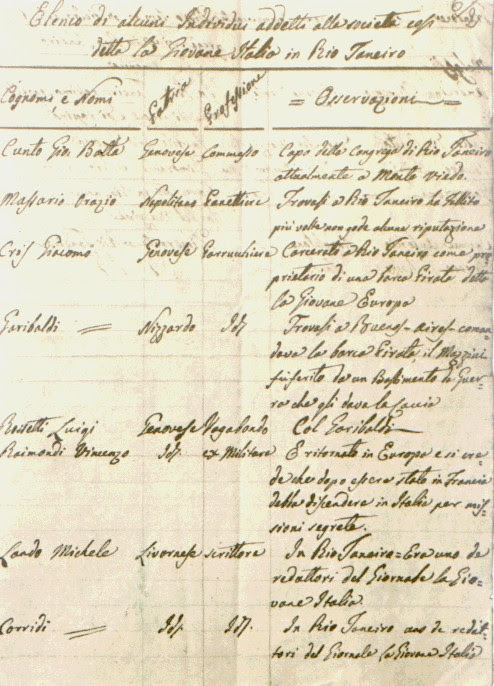 Elenco di alcuni Individui addetti alla società cosi
detta la Giovane Italia in Rio Janeiro
Cognomi e Nomi Patria Professione = Osservazioni =
Cunto Gio. Batta Genovese Commesso Capo della Congrega di Rio Janeiro
attualmente a Monte video.
Massario Orazio Napolitano Panettiere Trovasi a Rio Janeiro ha fallito
più volte non gode alcuna riputazione
Cris Giacomo Genovese Parrucchiere Carcerato a Rio Janeiro come pro
prietario di una barca Pirata detta
la Giovane Europa
Garibaldi = Nizzardo Id. Trovasi a Buenos-Aires coman
dava la barca Pirata, il Mazzini
fu ferito da un Bastimento da Guer
ra che gli dava la caccia
Rossetti Luigi Genovese Vagabondo Col Garibaldi
Raimondi Vincenzo Id. ex Militare È ritornato in Europa e si cre
de che dopo essere stato in Francia
debba discendere in Italia per mis
sioni segrete.
Lando Michele Livornese scrittore In Rio Janeiro = Era uno de
redattori del Giornale la Gio
vane Italia.
Corridi = Id. Id. In Rio Janeiro uno de redat
tori del Giornale la Giovane Italia